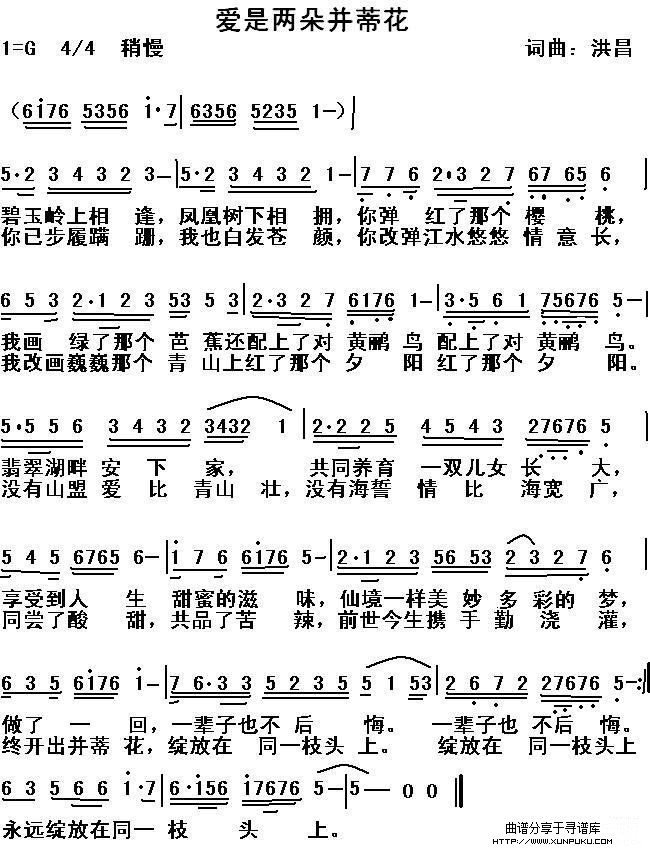 爱是两朵并蒂花
1=G 4/4 稍慢 词曲：洪昌
（6i76 5356 i·7|6356 5235 1-）|
5·2 3432 3-|5·2 3432 1-|7 76 2·327 6765 6
碧玉岭上相 逢，凤凰树下相 拥，你弹 红了那个 樱 桃，
你已步履蹒 跚，我也白发苍 颜，你改弹江水悠悠 情 意 长，
6 53 2·123 53 5 3|2·327 6176 1-|3·561 75676 5-|
我画 绿了那个 芭 蕉还配上了对 黄鹂 鸟 配上了对 黄鹂 鸟。
我改画巍巍那个 青 山上红了那个 夕 阳红了那个 夕 阳。
5·556 3432 3432 1|2·225 4543 27676 5|
翡翠湖畔 安 下 家， 共同养育 一双儿女 长 大，
没有山盟 爱 比 青山 壮，没有海誓 情 比 海宽 广，
5 45 6765 6-|i 76 6i76 5-|2·123 56 53 2327 6|
享受到人 生 甜蜜的滋 味，仙境一样美 妙 多 彩的 梦，
同尝了酸 甜，共品了苦 辣，前世今生携 手 勤 浇 灌，
6 35 6i76 i-|7 6·3 3523 5 5 1 53|2672 27676 5-:||
做了 一 回，一辈子也 不 后 悔。 一辈子也 不后 悔。
终开出并蒂 花，绽放在 同一枝头 上。 绽放在 同一枝头上
6 3 5 6 6 i·7|6·i56 i7676 5-|5-00|
永远绽放在同一 枝 头 上。
曲谱分享于寻谱库
WWW.XUNPUKU.COM